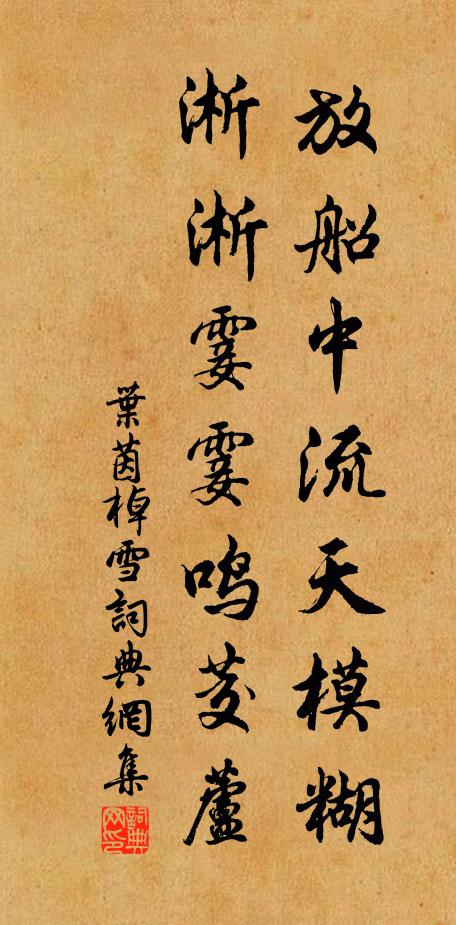 放船中流天模糊
淅淅霎霎鸣茭蘆
葉茵棹雪詞典網集
詞典网印